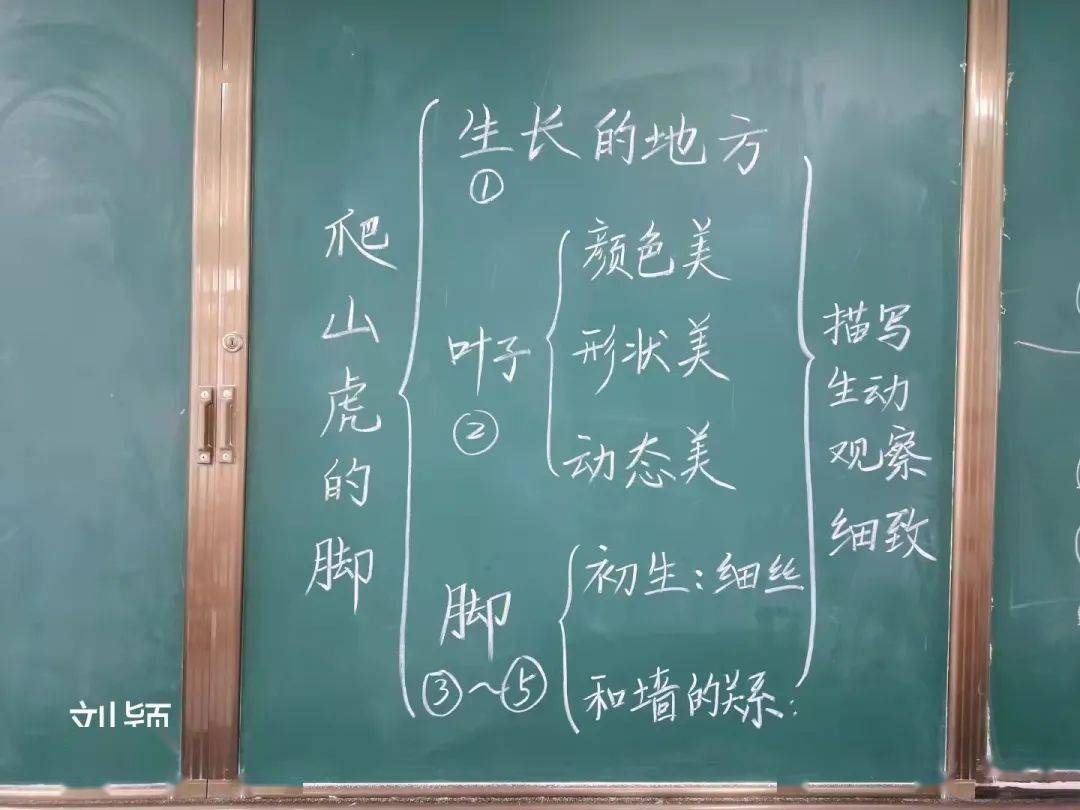 爬山虎的脚
生长的地方
①
叶子
②
颜色美
形状美
动态美
脚
③～⑤
初生：细丝
和墙的关系：
描写
生动
观察
细致
刘颖